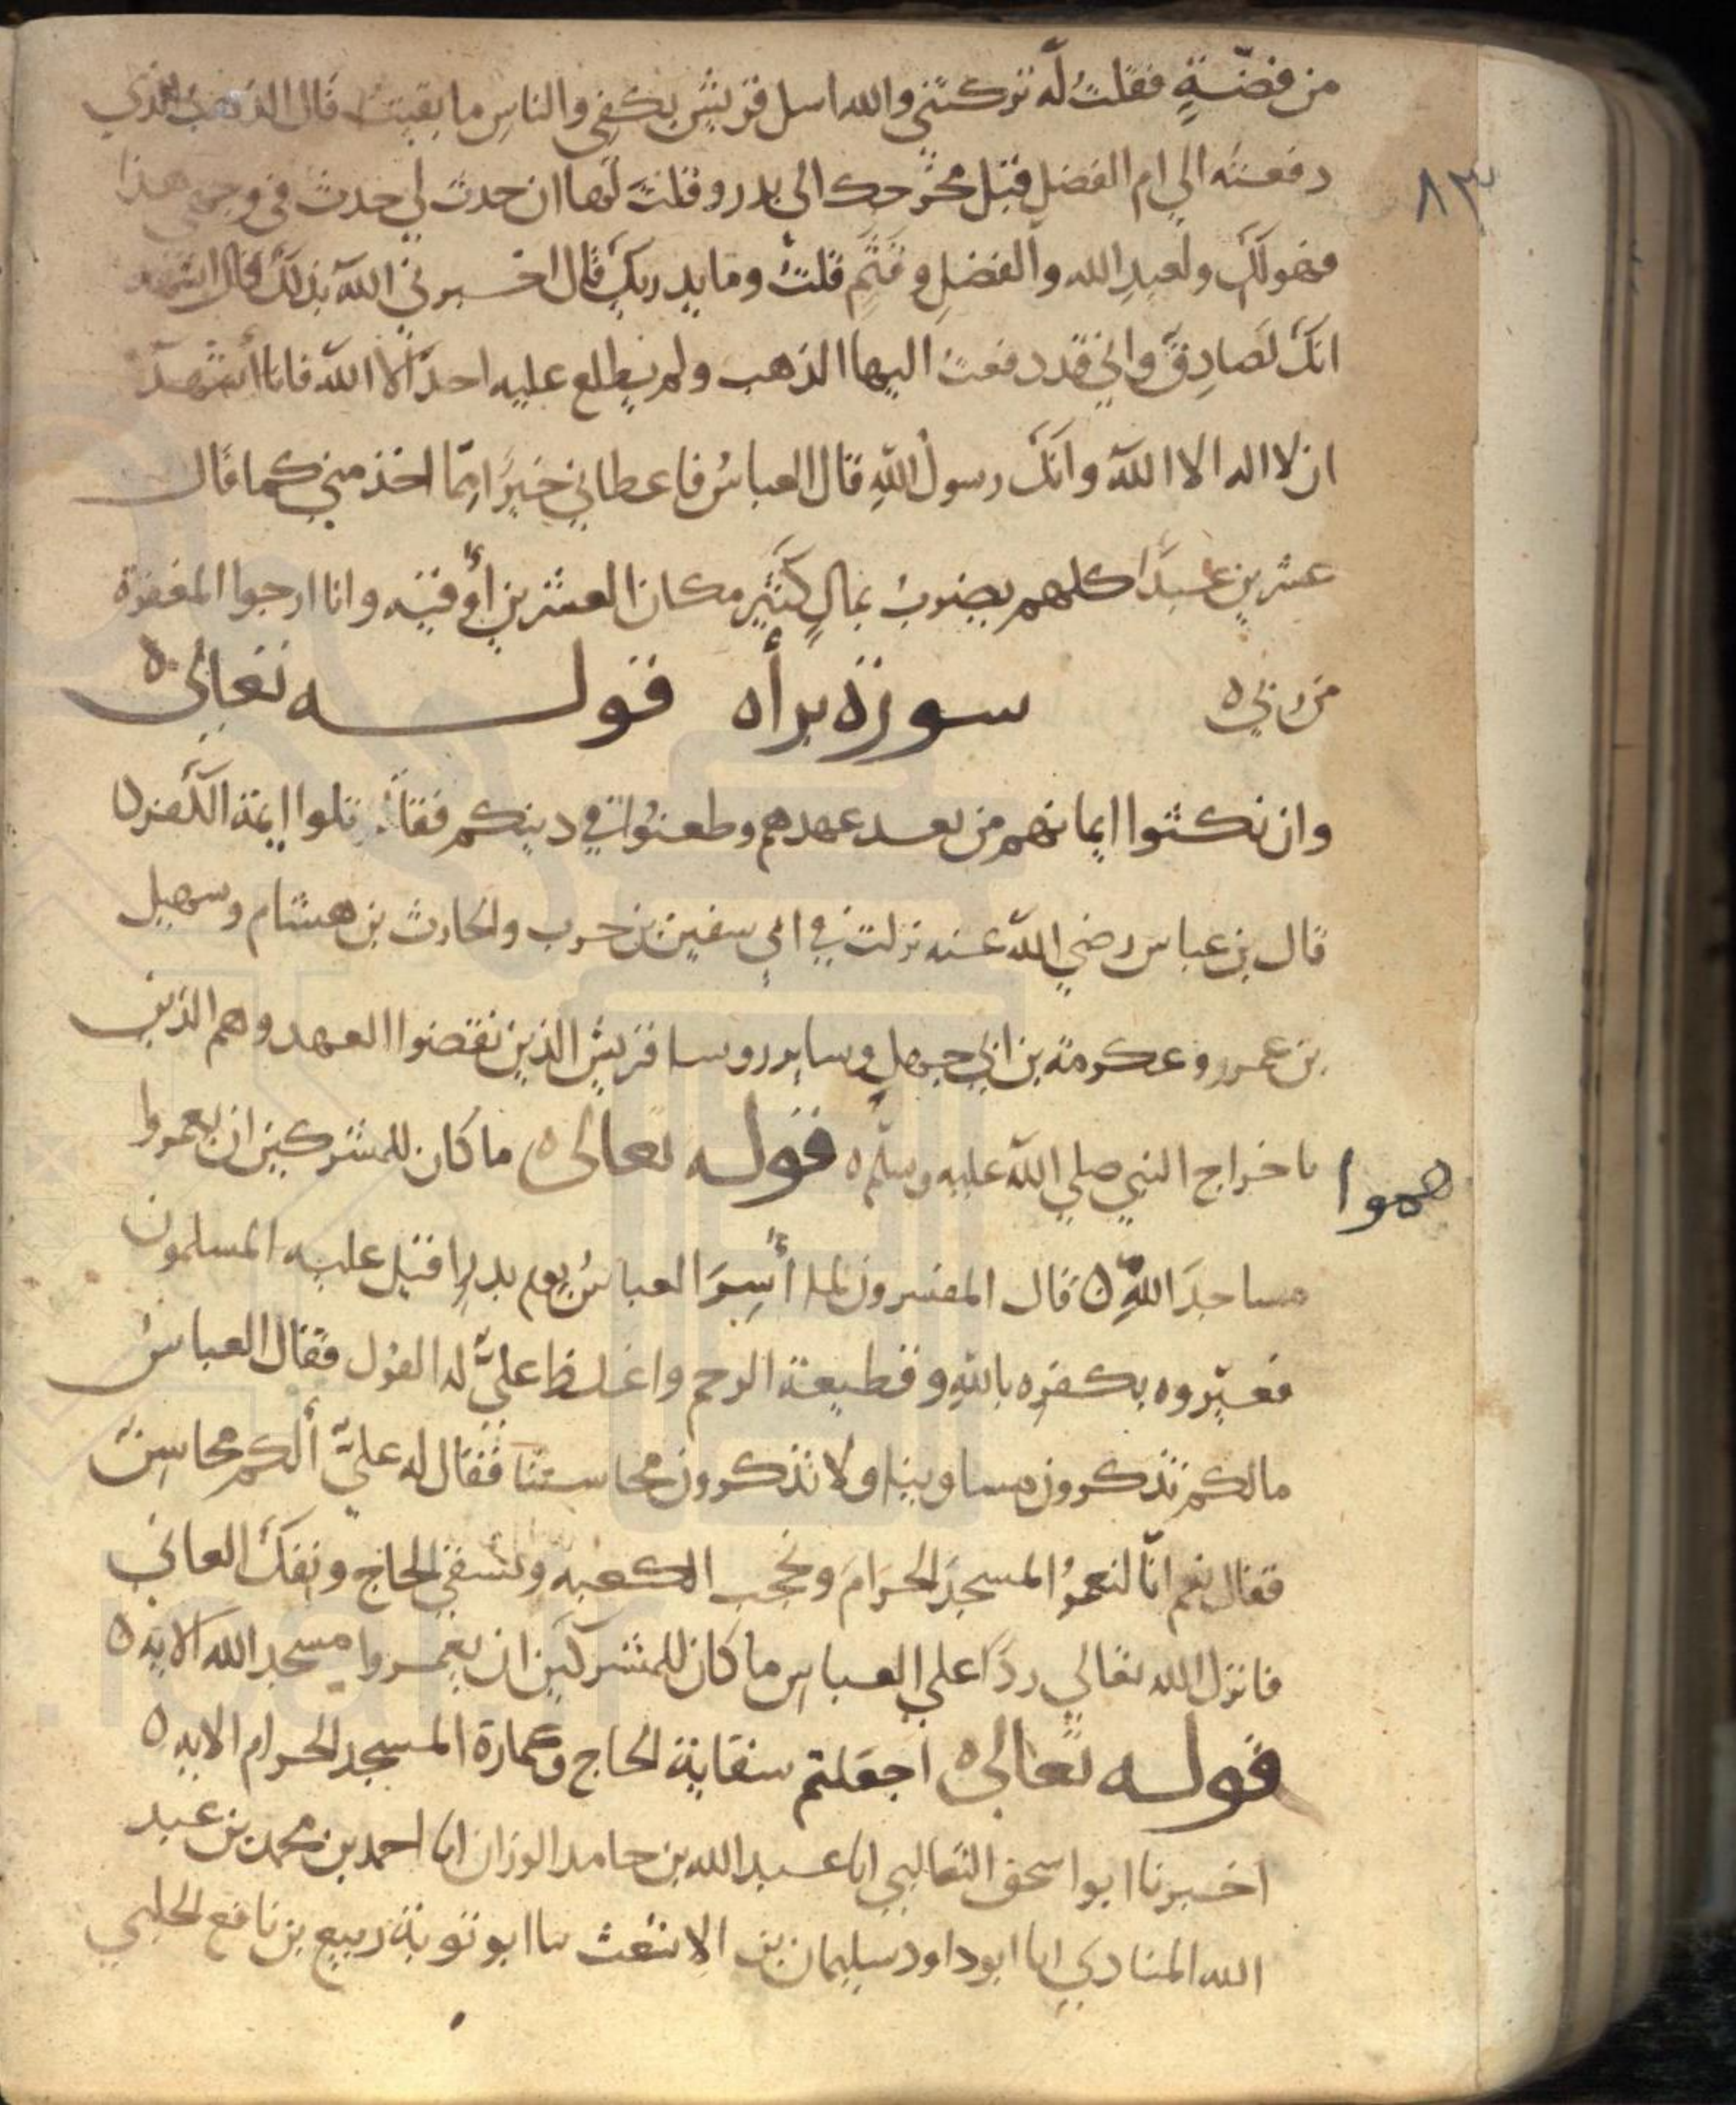 من فضة فقلت له تركتني والله اسل قريش بكفي والناس ما بقيت قال الذهب الذي
دفعته الي ام الفضل قبل مخرجك الى بدر وقلت لها ان حدث لي حدث في وجهي هذا
فهو لك ولعبد الله والفضل وقثم قلت وما يدريك قال اخبرني الله بذلك قال اشهد
انك لصادق واني قد دفعت اليها الذهب ولم يطلع عليه احد الا الله فانا اشهد
ان لا اله الا الله وانك رسول الله قال العباس فاعطاني خيرا مما اخذ مني كما قال
عشرين عبدا كلهم يضرب بمال كثير مكان العشرين أوقيه وانا ارجوا المغفرة
من ربي ه
سورة برأه قوله تعالى ه
وان نكثوا ايمانهم من بعد عهدهم وطعنوا في دينكم فقاتلوا ايمة الكفر ه
قال بن عباس رضي الله عنه نزلت في ابي سفين بن حرب والحارث بن هشام وسهيل
بن عمرو وعكرمة بن ابي جهل وساير روسا قريش الذين نقضوا العهد وهم الذين
هموا
باخراج النبي صلي الله عليه وسلم ه قوله تعالى ه ما كان للمشركين ان يعمروا
مساجد الله ه قال المفسرون لما أسر العباس يوم بدر اقبل عليه المسلمون
فعيروه بكفره بالله وقطيعة الرحم واغلظ علي له القول فقال العباس
مالكم تذكرون مساوينا ولا تذكرون محاسننا فقال له علي ألكم محاسن
فقال نعم انا لنعمر المسجد الحرام ونحجب الكعبه ونسقي الحاج ونفك العاني
فانزل الله تعالي ردا علي العباس ما كان للمشركين ان يعمروا مسجد الله الايه ه
قوله تعالى ه اجعلتم سقاية الحاج وعمارة المسجد الحرام الايه ه
اخبرنا ابو اسحق الثعالبي انا عبد الله بن حامد الوزان انا احمد بن محمد بن عبد
الله المنادي انا ابو داود سليمان بن الاشعث نا ابو توبة ربيع بن نافع الحلبي
٨٣